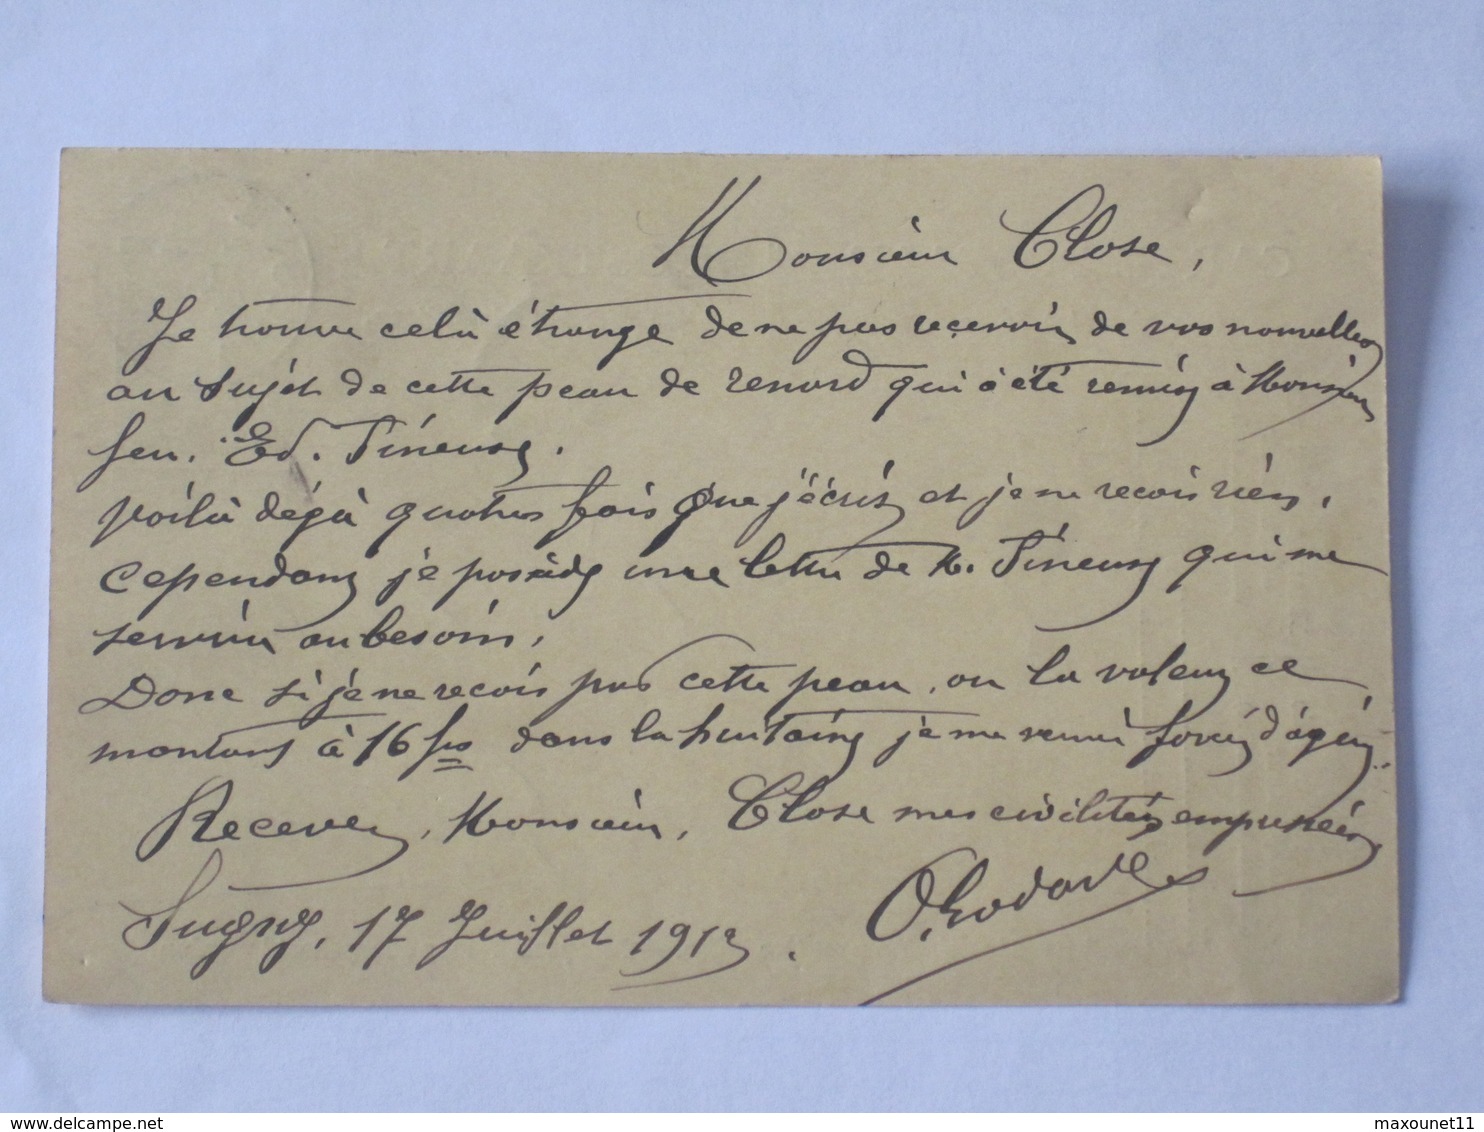 Monsieur Close,
Je trouve celà étrange de ne pas recevoir de vos nouvelles
au sujet de cette peau de renard qui a été remis à Monsieur
feu. Ed. Pineusy.
Voilà déjà quatres fois que j'écris et je ne recois rien,
Cependant je possède une lettre de M. Pineusy qui me
servira au besoin,
Donc si je ne recois pas cette peau, ou la valeur ce
montant à 16 frs dans la huitaine je me verrai forcé d'agir..
Recevez, Monsieur, Close mes civilités empressées
Sugny, 17 Juillet 1913.
delcampe.net
maxounet11